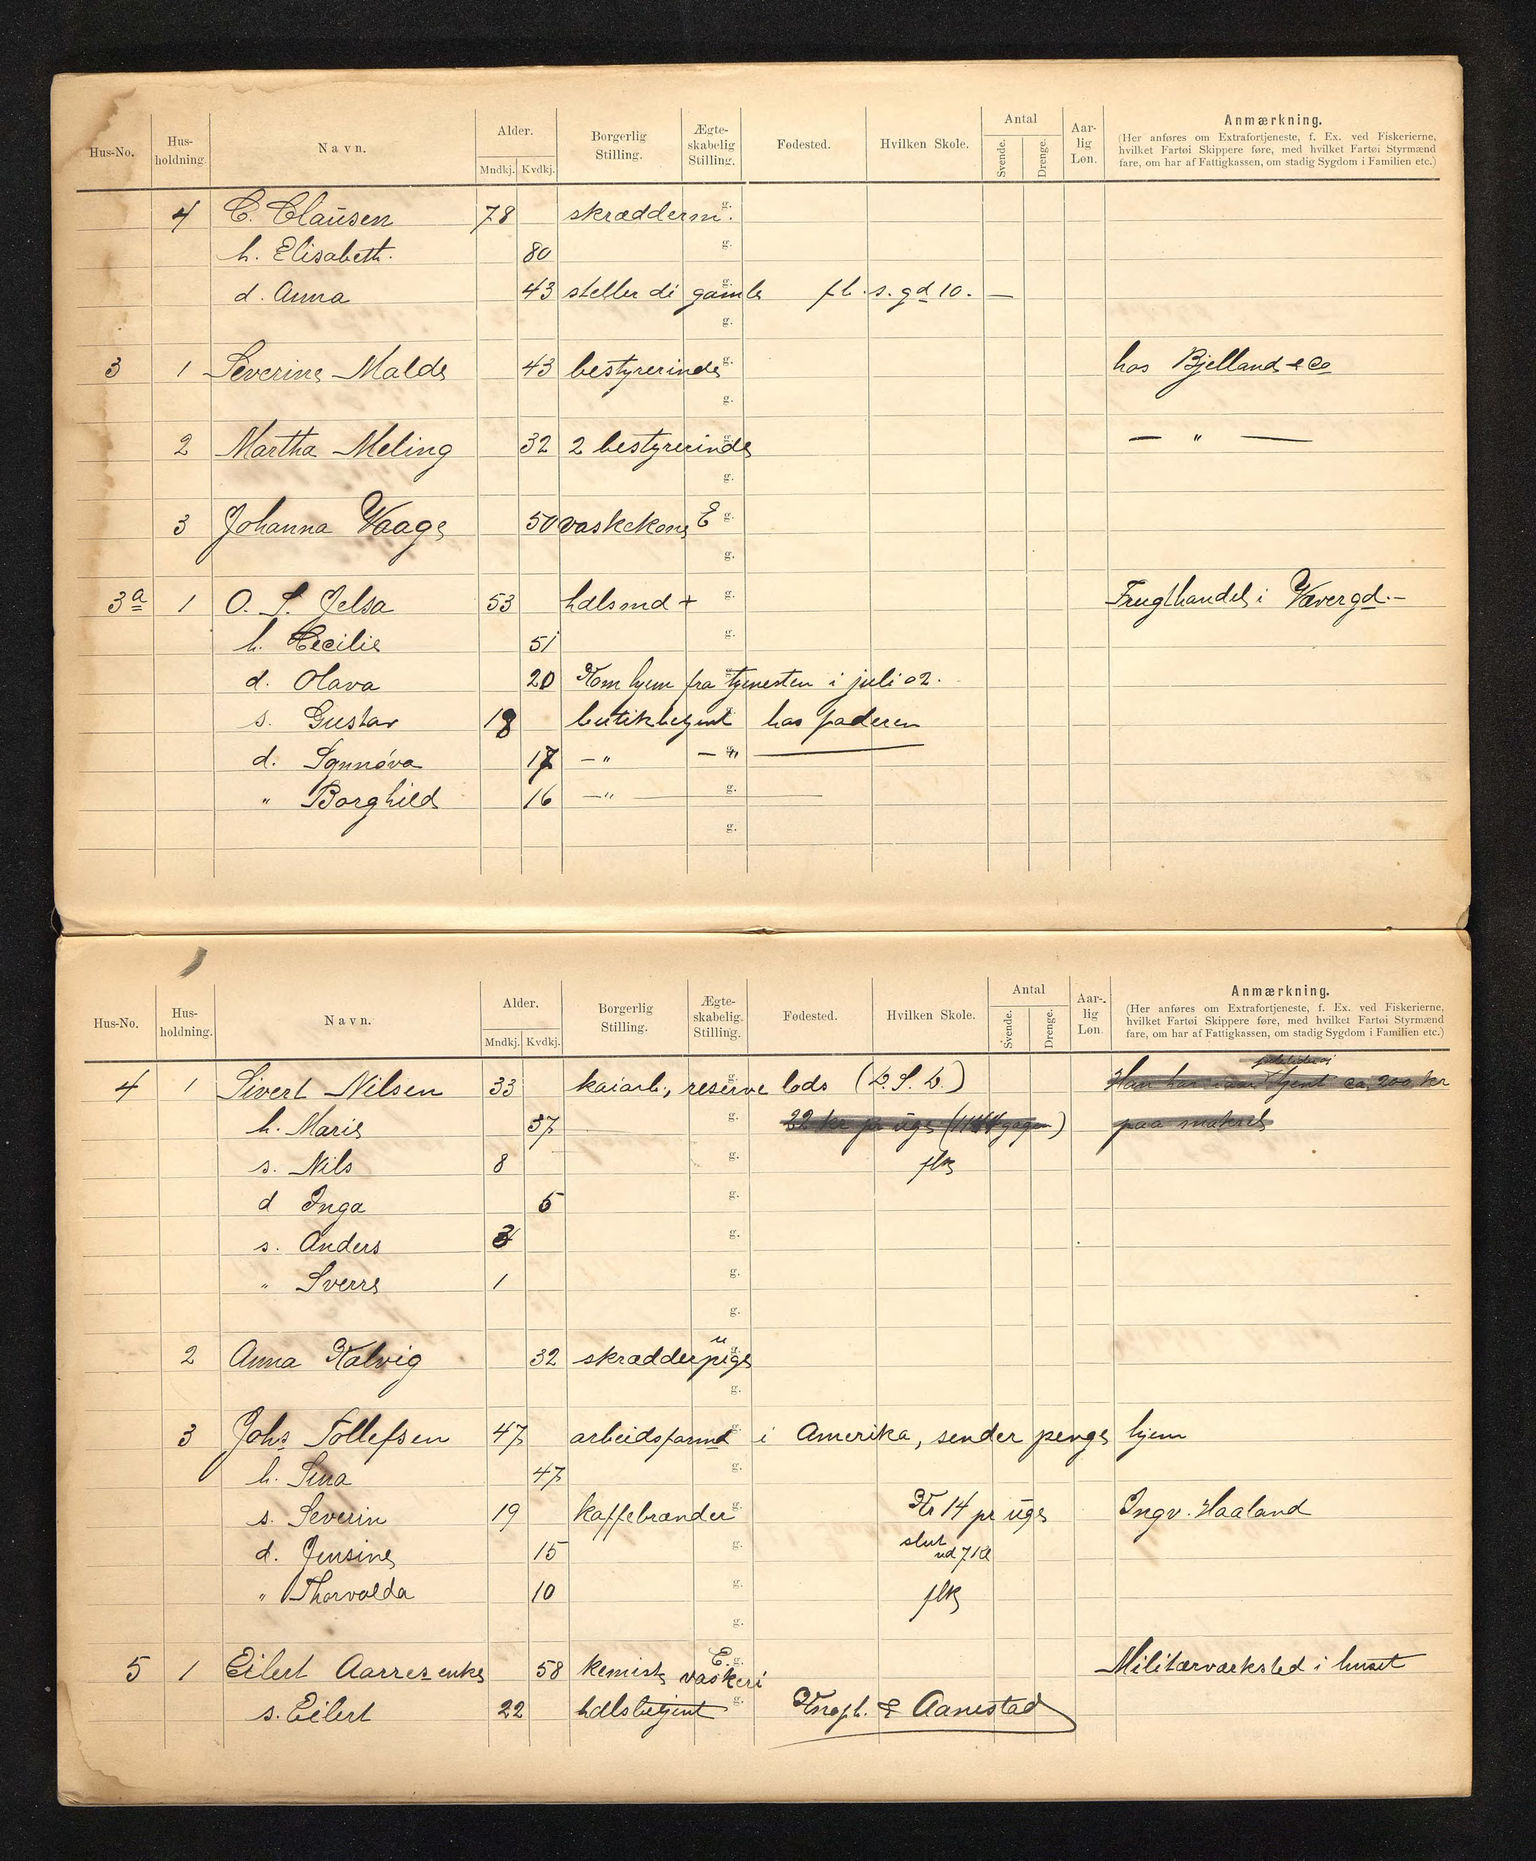 Hus-No. Hus-holdning. Navn. Alder. Mndkj. Kvdkj. Borgerlig Stilling. Ægte-skabelig Stilling. Fødested. Hvilken Skole. Antal Svende. Drenge. Aar-lig Løn. Anmærkning.
(Her anføres om Extrafortjeneste, f. Ex. ved Fiskerierne,
hvilket Fartøi Skippere føre, med hvilket Fartøi Styrmænd
fare, om har af Fattigkassen, om stadig Sygdom i Familien etc.)
4 C. Clausen 78 skrædderm. g.
h. Elisabeth. 80 g.
d. Anna 43 steller di gamle fl. s. gd 10. —
g.
3 1 Severine Malde 43 bestyrerinde g. hos Bjelland & Co
g.
2 Martha Meling 32 2 bestyrerinde — " —
g.
3 Johanna Vaage 50 vaskekone E g.
g.
3a 1 O. S. Jelsa 53 hdlsmd + g. Frugthandel i Vævergd. –
h. Cecilie 51 g.
d. Olava 20 Kom hjem fra tjenesten i juli 02.
s. Gustav 18 butikbetjent hos faderen
d. Synnøva 17 – " – " —
" Borghild 16 – " — g.
g.
Hus-No. Hus-holdning. Navn. Alder. Mndkj. Kvdkj. Borgerlig Stilling. Ægte-skabelig Stilling. Fødested. Hvilken Skole. Antal Svende. Drenge. Aar-lig Løn. Anmærkning.
(Her anføres om Extrafortjeneste, f. Ex. ved Fiskerierne,
hvilket Fartøi Skippere føre, med hvilket Fartøi Styrmænd
fare, om har af Fattigkassen, om stadig Sygdom i Familien etc.)
4 1 Sivert Nilsen 33 kaiarb., reserve lods (D. S. D.) Han har iaar tjent ca. 200 kr
h. Marie 37 g. 22 kr pr uge paa makrel
s. Nils 8 g. flk
d Inga 5 g.
s. Anders 3 g.
" Sverre 1 g.
g.
2 Anna Kalvig 32 skrædderpige u
g.
3 Johs Tollefsen 47 arbeidsformd i Amerika, sender penge hjem
h. Sina 47 g.
s. Severin 19 kaffebrænder g. Kr 14 pr uge Ingv. Haaland
d. Jensine 15 g. slut ud 7 kl
" Thorvalda 10 g. flk
g.
5 1 Eilert Aarres enke 58 kemisk vaskeri E. g. Militærværksted i huset
s. Eilert 22 hdlsbetjent g. Knoph. & Aanestad